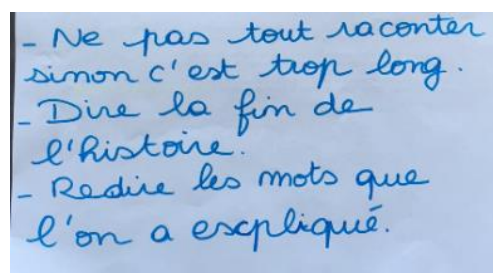 - Ne pas tout raconter
sinon c'est trop long.
- Dire la fin de
l'histoire.
- Redire les mots que
l'on a expliqué.